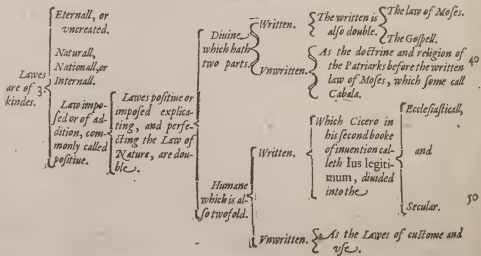 Lawes
are of 3
kindes.
Eternall, or
vncreated.
Naturall,
Nationall, or
Internall.
Law impo-
sed or of ad-
dition, com-
monly called
positiue.
Lawes positiue or
imposed explica-
ting, and perfe-
cting the Law of
Nature, are dou-
ble.
Diuine
which hath
two parts.
Written.
The written is
also double.
The law of Moses.
The Gospell.
Vnwritten.
As the doctrine and religion of
the Patriarks before the written
law of Moses, which some call
Cabala.
40
Humane
which is al-
so twofold.
Written.
Which Cicero in
his second booke
of inuention cal-
leth Ius legiti-
mum, diuided
into the
Ecclesiasticall,
and
Secular.
50
Vnwritten.
As the Lawes of custome and
vse.